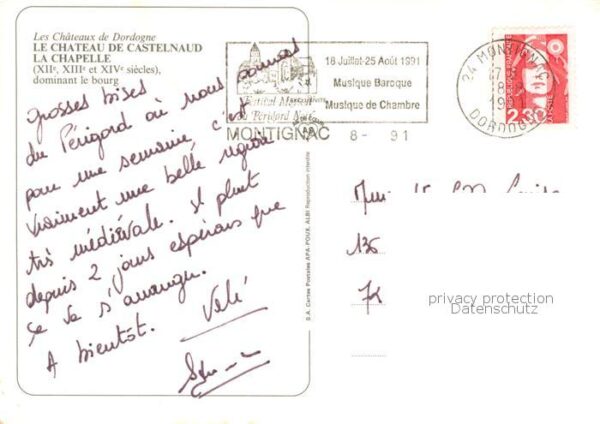 Les Châteaux de Dordogne
LE CHATEAU DE CASTELNAUD
LA CHAPELLE
(XIIe, XIIIe et XIVe siècles),
dominant le bourg
Grosses bises
du Périgord où nous sommes
pour une semaine, c'est
vraiment une belle région
très médiévale. Il pleut
depuis 2 jours espérons que
ça va s'arranger.
A bientôt. Valé
18 Juillet-25 Août 1991
Musique Baroque
Musique de Chambre
Festival
du Périgord
MONTIGNAC 8- 91
24 MONTIGNAC
DORDOGNE
2,30
S.A. Cartes Postales APA-POUX, ALBI Reproduction interdite
136
privacy protection
Datenschutz